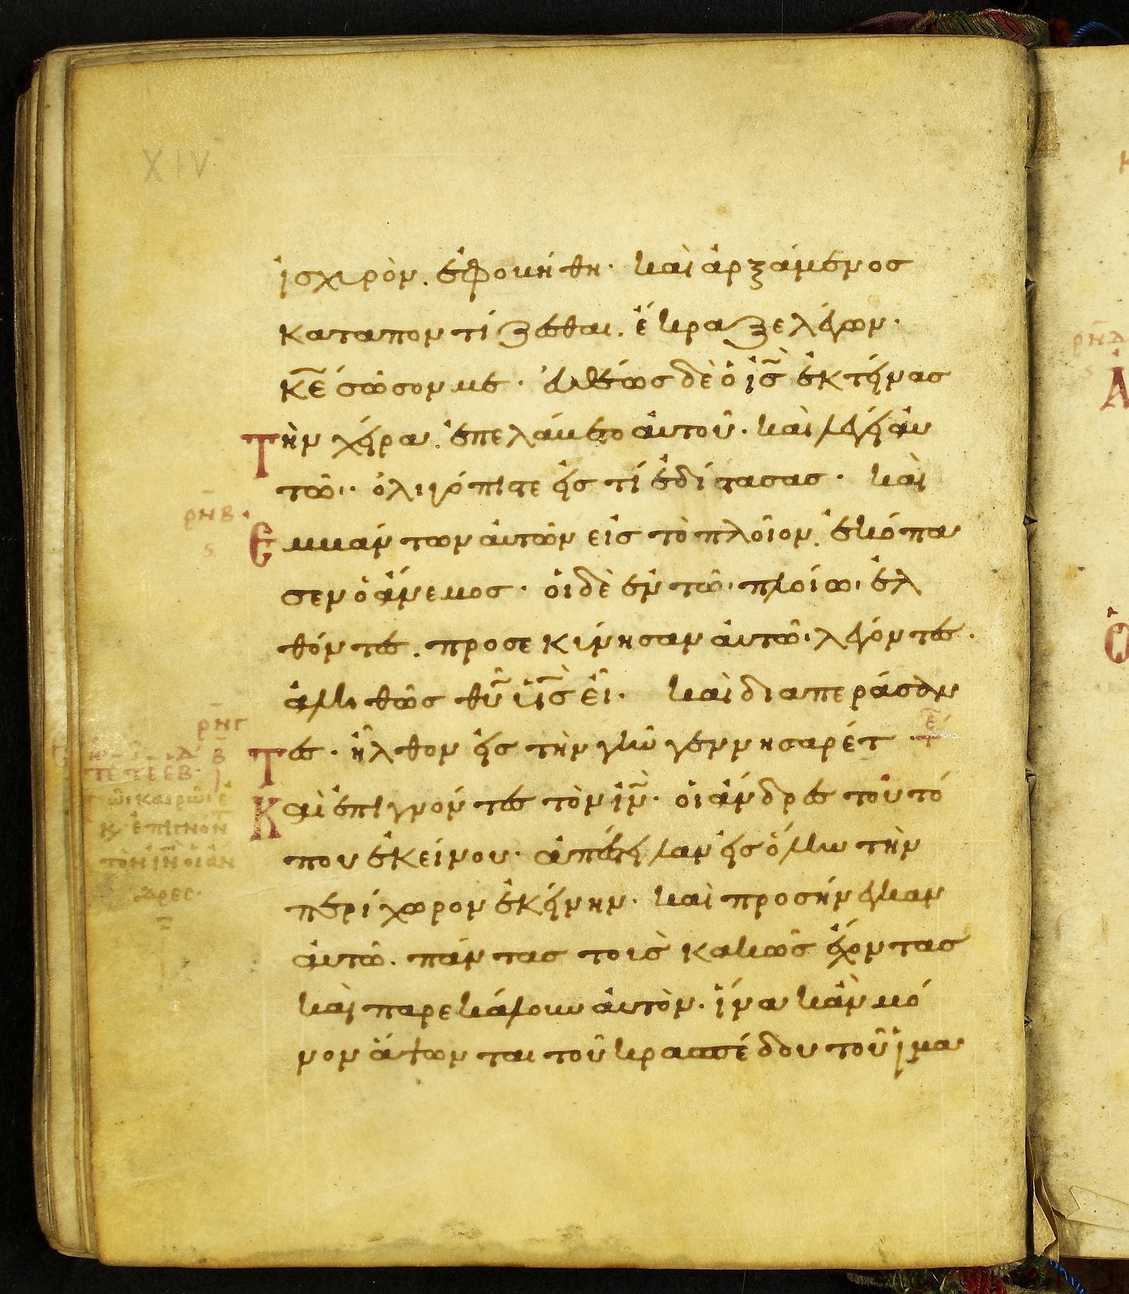 XIV
ἰσχυρὸν. ἐφοβήθη· καὶ ἀρξάμενος
καταποντίζεσθαι. ἔκραξε λέγων·
κ̅ε̅ σῶσον με· ἐυθέως δὲ ὁ ι̅ς̅ ἐκτήνας
τὴν χήρα. ἐπελάμετο ἀυτοῦ· καὶ λέγει ἀυ
τῶ· ὀλιγόπιστε ἠς τί ἐδίστασας· καὶ
ρ̅ν̅β̅
ς
Εμμάντων ἀυτῶν εἰς τὸ πλοῖον. ἐκόπα
σεν ὁ ἄνεμος· οἱ δὲ ἐν τῶ πλοίω ἐλ
θόντες. προσεκύνησαν ἀυτῶ λέγοντες.
ἀληθῶς θ̅υ̅ υ̅ς̅ εἶ· καὶ διαπεράσαν
ρ̅ν̅γ̅
τες· ἦλθον ἠς τὴν γῆν γεννησαρέτ·
Καὶ ἐπιγνόντες τὸν ι̅ν̅· οἱ ἄνδρες τοῦ τό
που ἐκείνου· ἀπέστηλαν ἠς ὅλην τὴν
περίχωρον ἐκήνην· καὶ προσήνεγκαν
ἀυτῶ. πάντας τοὺς κακῶς ἔχοντας
καὶ παρεκάλουν ἀυτὸν· ἵνα κἂν μό
νον ἅψωνται τοῦ κρασπέδου τοῦ ἱμα